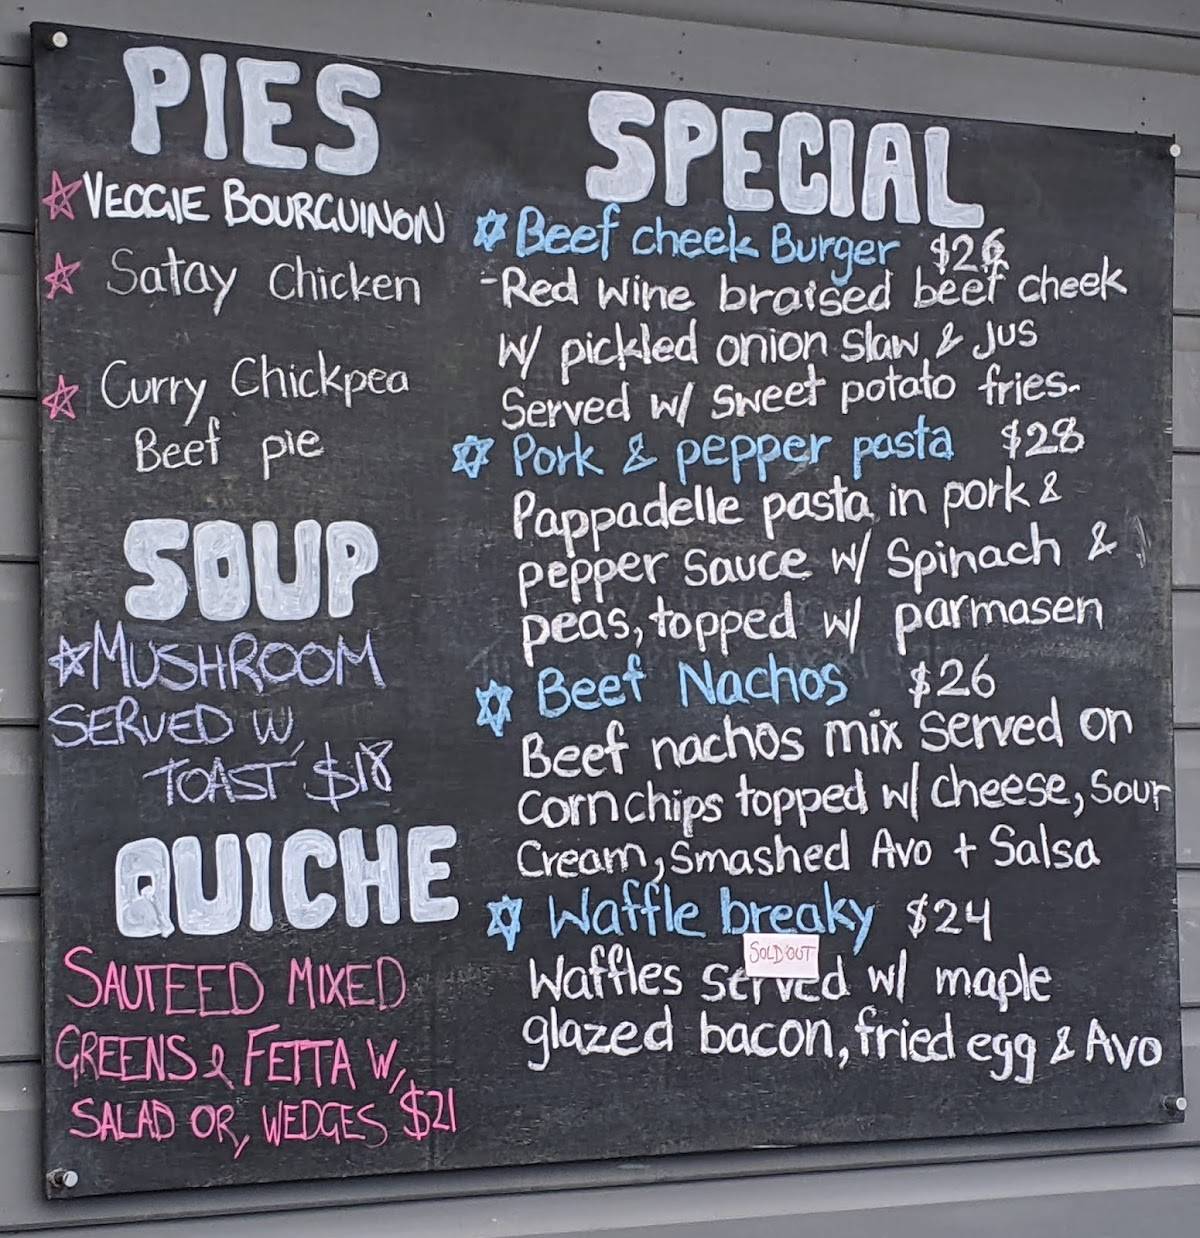 PIES
VEGGIE BOURGUINON
Satay Chicken
Curry Chickpea
Beef pie
SOUP
MUSHROOM
SERVED W,
TOAST $18
QUICHE
SAUTEED MIXED
GREENS & FETTA W,
SALAD OR, WEDGES $21
SPECIAL
Beef cheek Burger $26
-Red Wine braised beef cheek
w/ pickled onion slaw, & Jus
Served w/ sweet potato fries.
Pork & pepper pasta $28
Pappadelle pasta in pork &
pepper sauce w/ Spinach &
peas, topped w/ parmasen
Beef Nachos $26
Beef nachos mix served on
Cornchips topped w/ cheese, Sour
Cream, Smashed Avo + Salsa
Waffle breaky $24
SOLD OUT
Waffles served w/ maple
glazed bacon, fried egg & Avo